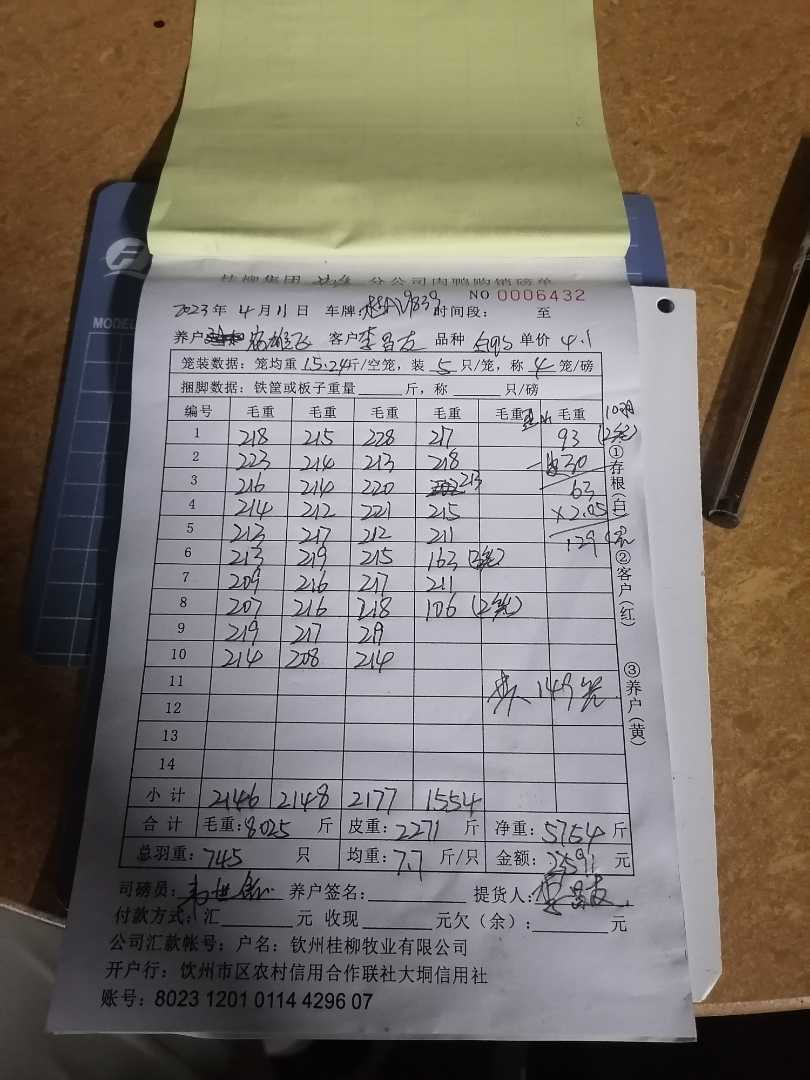 MODEL
桂柳集团 分公司肉鸭购销磅单
NO 0006432
2023年 4月11日 车牌: 9839 时间段: 至
养户 客户 李 品种 单价 4.1
笼装数据: 笼均重 15.24斤/空笼, 装 5 只/笼, 称 4 笼/磅
捆脚数据: 铁筐或板子重量 斤, 称 只/磅
编号 毛重 毛重 毛重 毛重 毛重 毛重 10羽
1 218 215 228 217 93 (2笼)
2 223 214 213 218 30
3 216 214 220 213 63
4 214 212 221 215 ×2.05
5 213 217 212 211 129
6 213 219 215 163 (3笼)
7 209 216 217 211
8 207 216 218 106 (2笼)
9 219 217 219
10 214 208 214
11 149笼
12
13
14
小计 2146 2148 2177 1554
合计 毛重: 8025 斤 皮重: 2271 斤 净重: 5754 斤
总羽重: 745 只 均重: 7.7 斤/只 金额: 23591 元
司磅员: 养户签名: 提货人:
付款方式: 汇 元 收现 元欠(余): 元
公司汇款帐号: 户名: 钦州桂柳牧业有限公司
开户行: 钦州市区农村信用合作联社大垌信用社
账号: 8023 1201 0114 4296 07
①存根(白)
②客户(红)
③养户(黄)